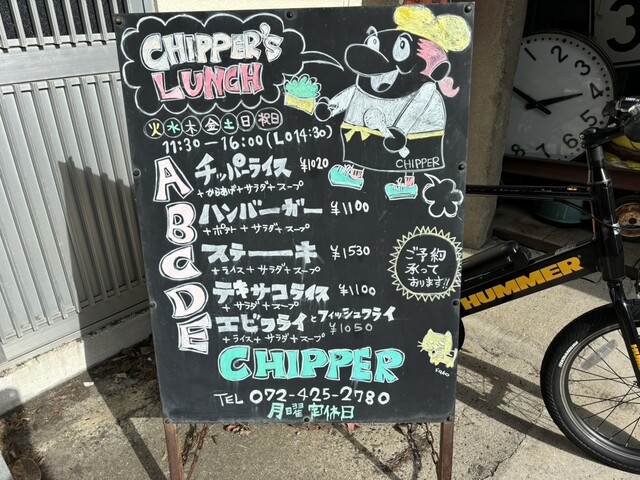 CHIPPER'S
LUNCH
火 水 木 金 土 日 祝日
11:30 — 16:00 (LO 14:30)
CHIPPER
A チッパーライス ¥1020
+からあげ+サラダ+スープ
B ハンバーガー ¥1100
+ポテト+サラダ+スープ
C ステーキ ¥1530
+ライス+サラダ+スープ
D テキサコライス ¥1100
+サラダ+スープ
E エビフライとフィッシュフライ
¥1050
+ライス+サラダ+スープ
ご予約
承って
おります!!
CHIPPER
TEL 072-425-2780
月曜定休日
HUMMER